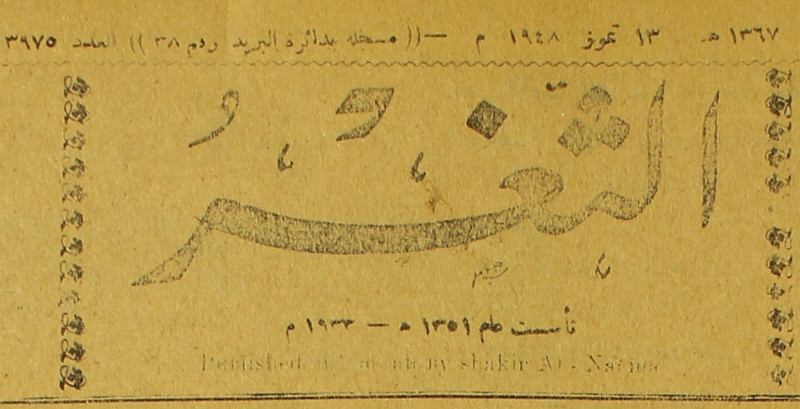 ١٣٦٧ هـ ١٣ تموز ١٩٤٨ م —(( مسجلة بدائرة البريد رقم ٣٨ )) العدد ٣٩٧٥
الثَّغْرُ
تأست عام ١٣٥١ هـ — ١٩٣٣ م
Published shakir Al - Nacima